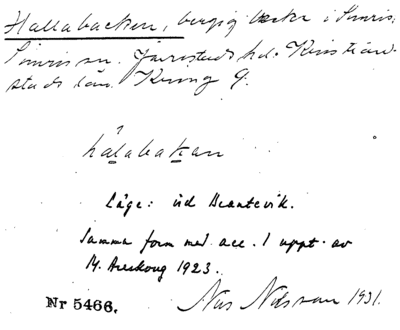 Hallabacken, bergig backe i Simris,
Simris sn. Järrestads hd. Kristian-
stads län. Kring 9.
hálabakan
Läge: vid Brantevik.
Samma form med acc. 1 uppt. av
14. Areskoug 1923.
Nr 5466. Nils Nilsson 1931.